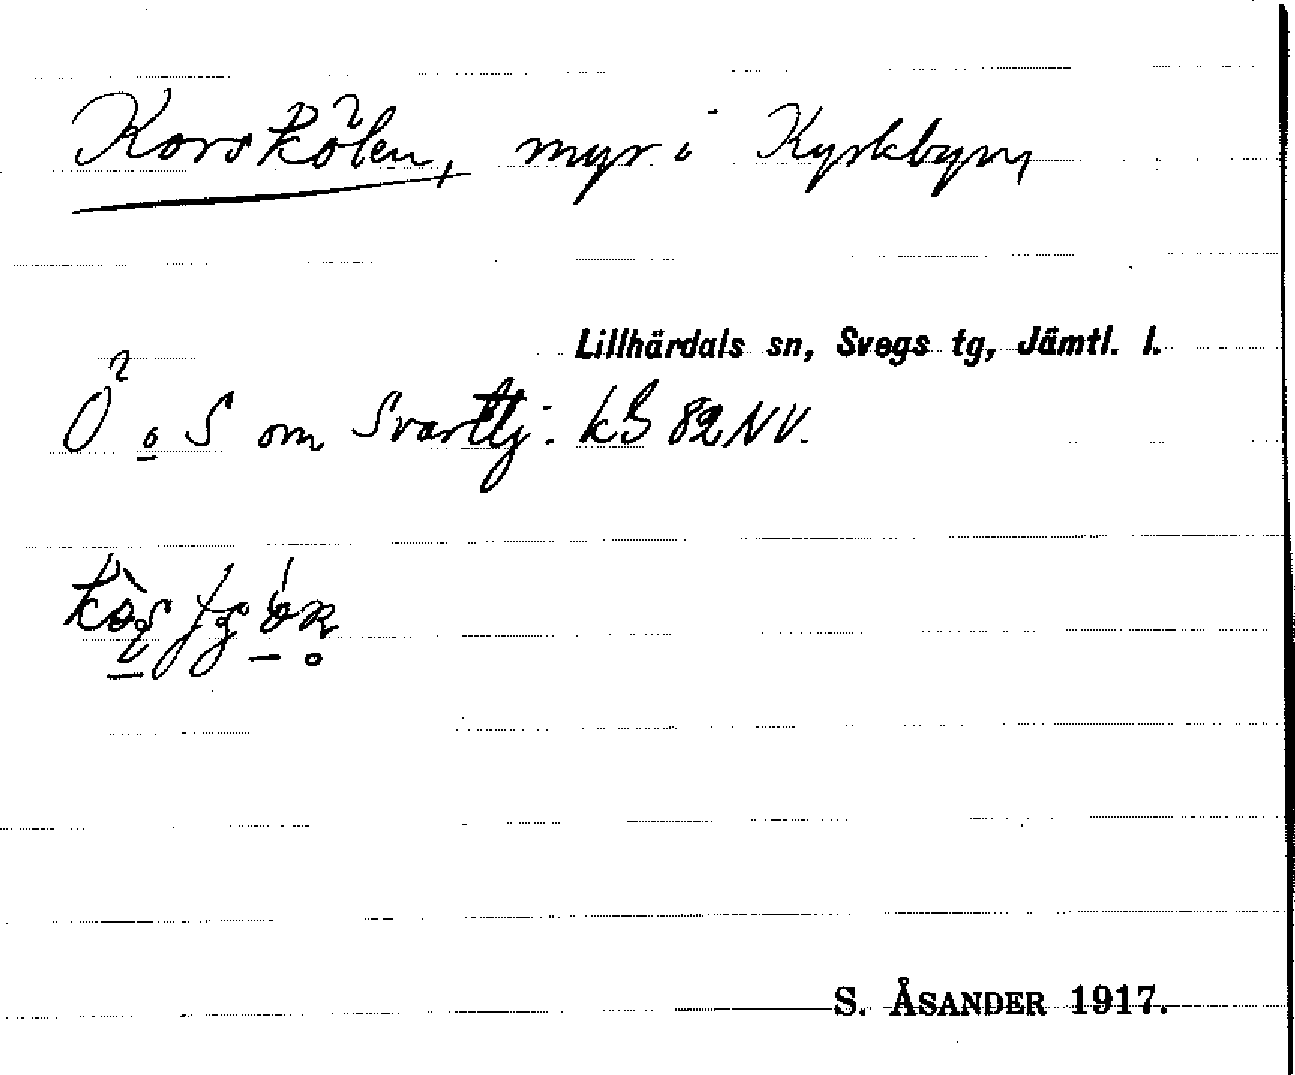 Korskölen, myr i Kyrkbyn
Lillhärdals sn, Svegs tg, Jämtl. l.
Ö o S om Svarttj: kB 82 NV.
S. ÅSANDER 1917.